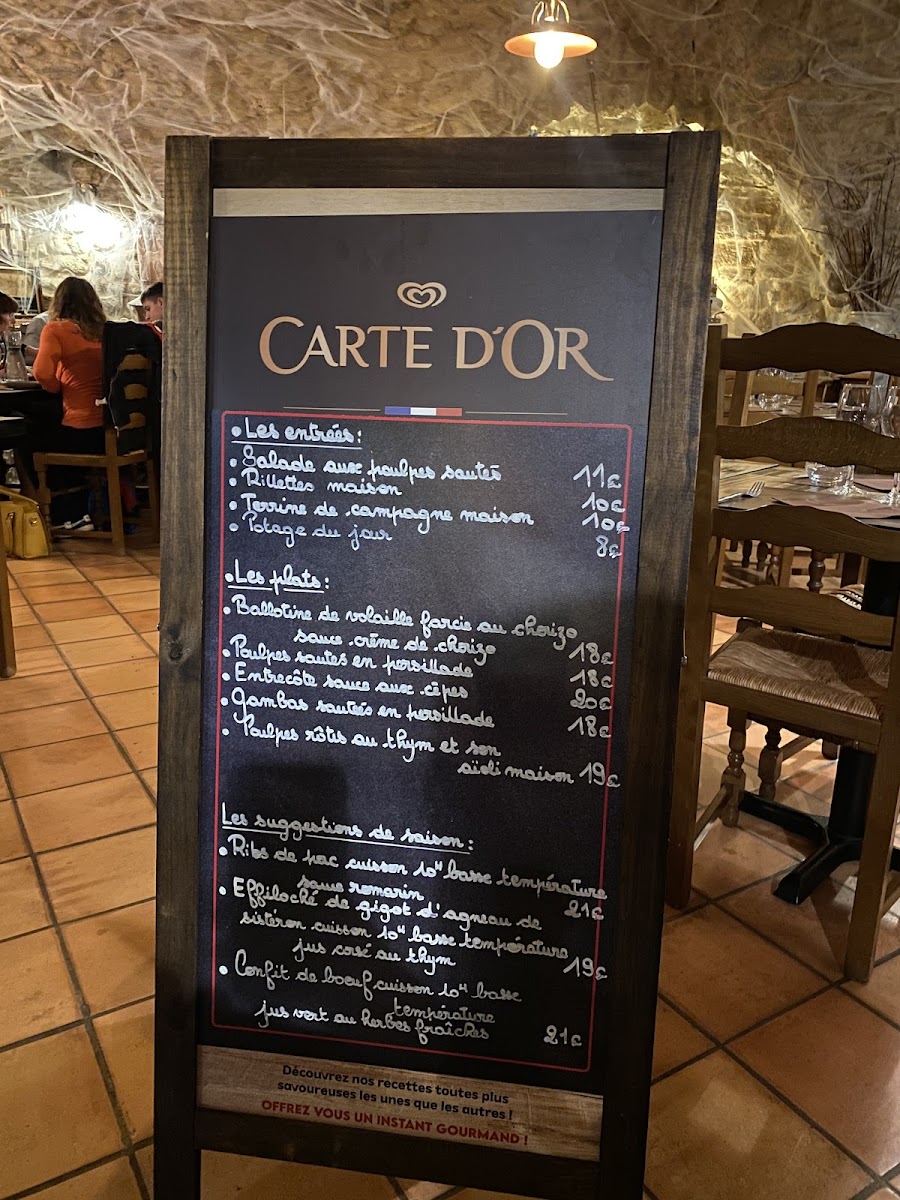 CARTE D'OR
• Les entrées :
• Salade aux poulpes sautés 11€
• Rillettes maison 10€
• Terrine de campagne maison 10€
• Potage du jour 8€
• Les plats :
• Ballotine de volaille farcie au chorizo
sauce crème de chorizo 18€
• Poulpes sautés en persillade 18€
• Entrecôte sauce aux cêpes 20€
• Gambas sautées en persillade 18€
• Poulpes rôtis au thym et son
aïoli maison 19€
Les suggestions de saison :
• Ribs de porc cuisson 10H basse température
sauce romarin 21€
• Effiloché de gigot d'agneau de
sistéron cuisson 10H basse température
jus corsé au thym 19€
• Confit de boeuf cuisson 10H basse
température
jus vert au herbes fraîches 21€
Découvrez nos recettes toutes plus
savoureuses les unes que les autres !
OFFREZ VOUS UN INSTANT GOURMAND !